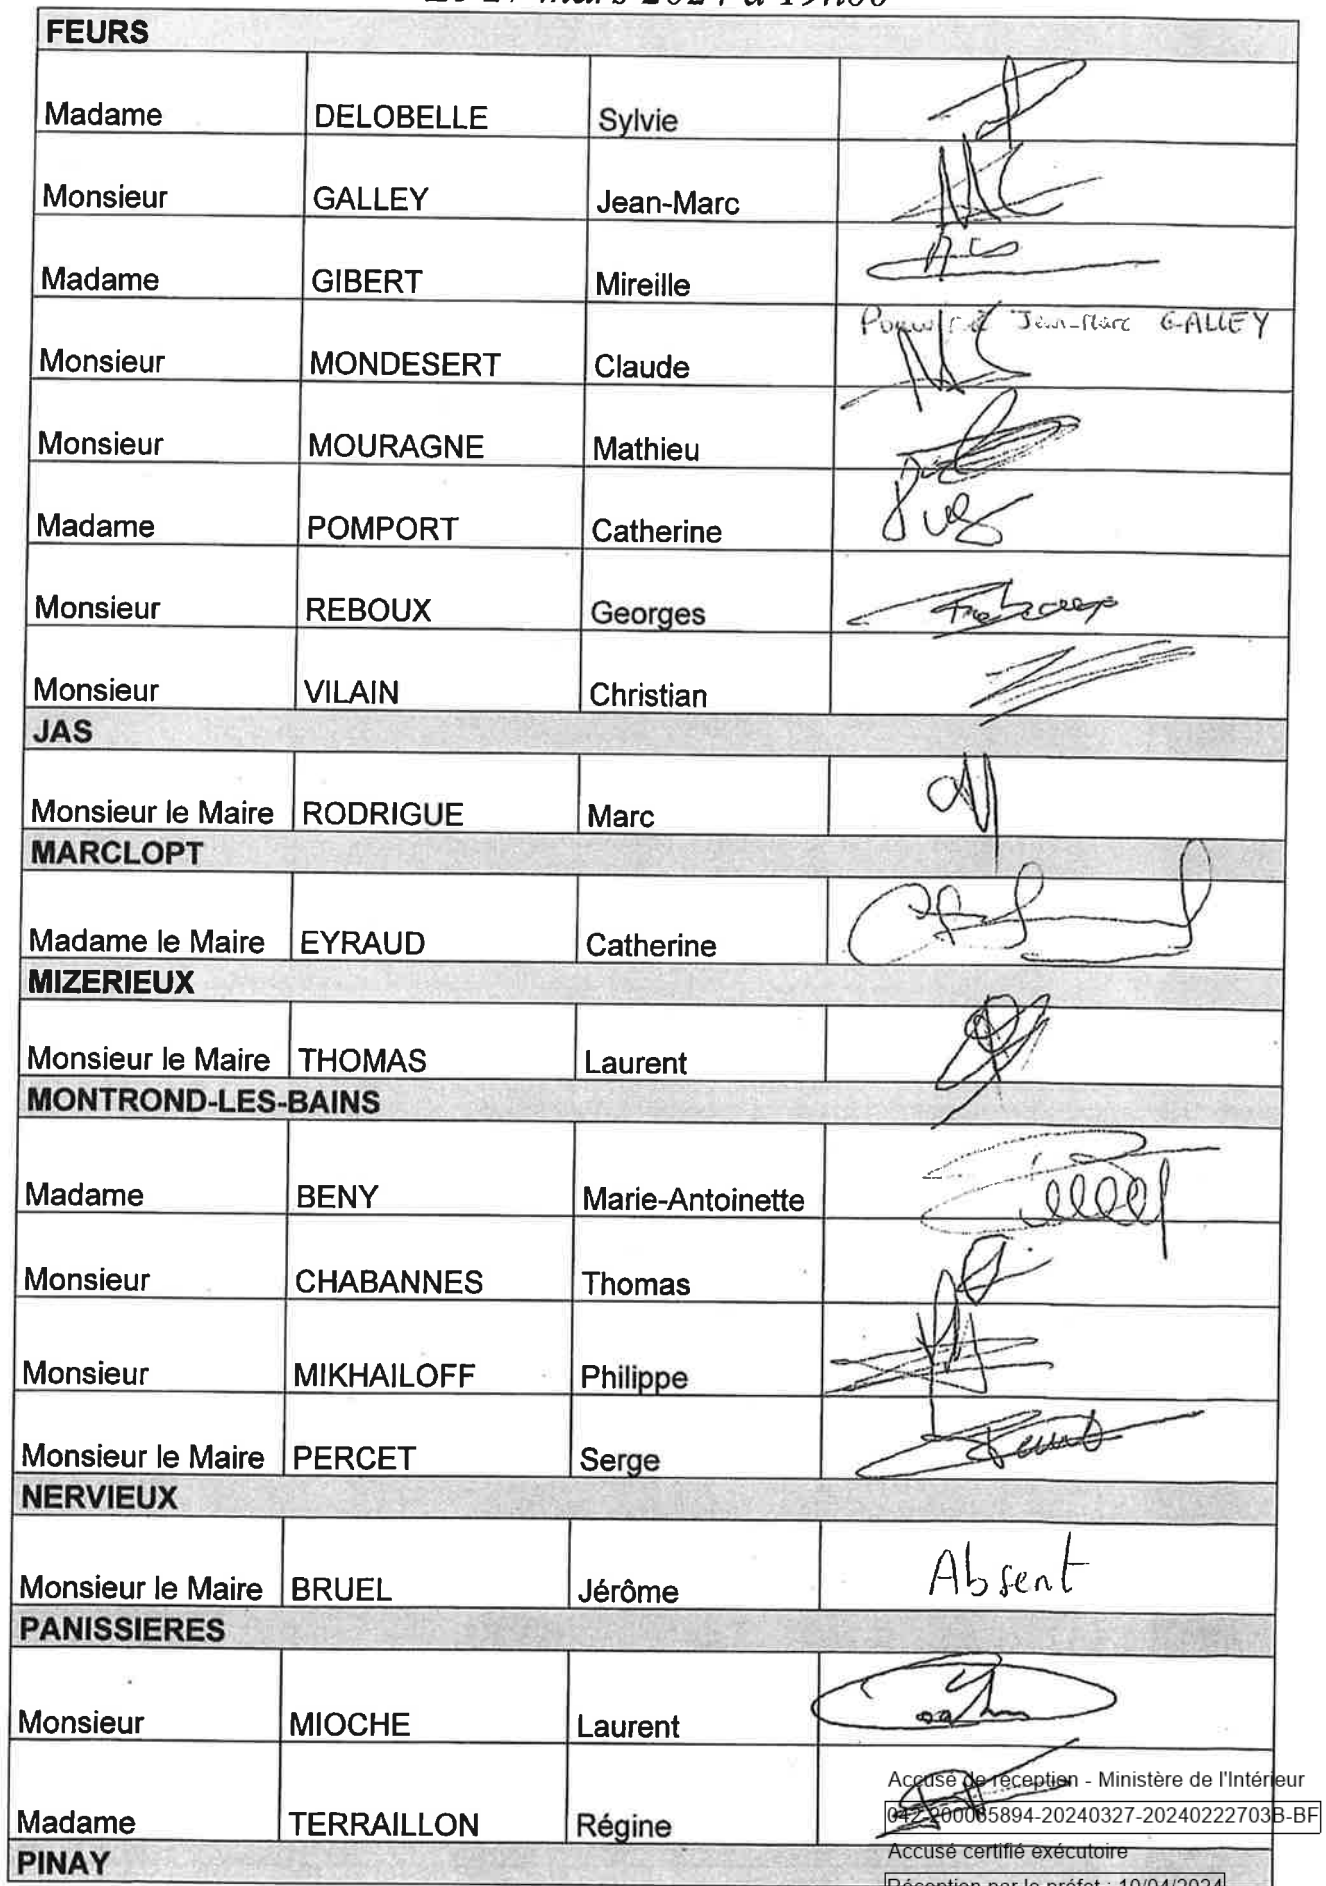 FEURS
Madame DELOBELLE Sylvie
Monsieur GALLEY Jean-Marc
Madame GIBERT Mireille
Jean-Marc GALLEY
Monsieur MONDESERT Claude
Monsieur MOURAGNE Mathieu
Madame POMPORT Catherine
Monsieur REBOUX Georges
Monsieur VILAIN Christian
JAS
Monsieur le Maire RODRIGUE Marc
MARCLOPT
Madame le Maire EYRAUD Catherine
MIZERIEUX
Monsieur le Maire THOMAS Laurent
MONTROND-LES-BAINS
Madame BENY Marie-Antoinette
Monsieur CHABANNES Thomas
Monsieur MIKHAILOFF Philippe
Monsieur le Maire PERCET Serge
NERVIEUX
Monsieur le Maire BRUEL Jérôme Absent
PANISSIERES
Monsieur MIOCHE Laurent
Accusé de réception - Ministère de l'Intérieur
042-200065894-20240327-20240222703B-BF
Madame TERRAILLON Régine
Accusé certifié exécutoire
PINAY
Réception par le préfet : 10/04/2024